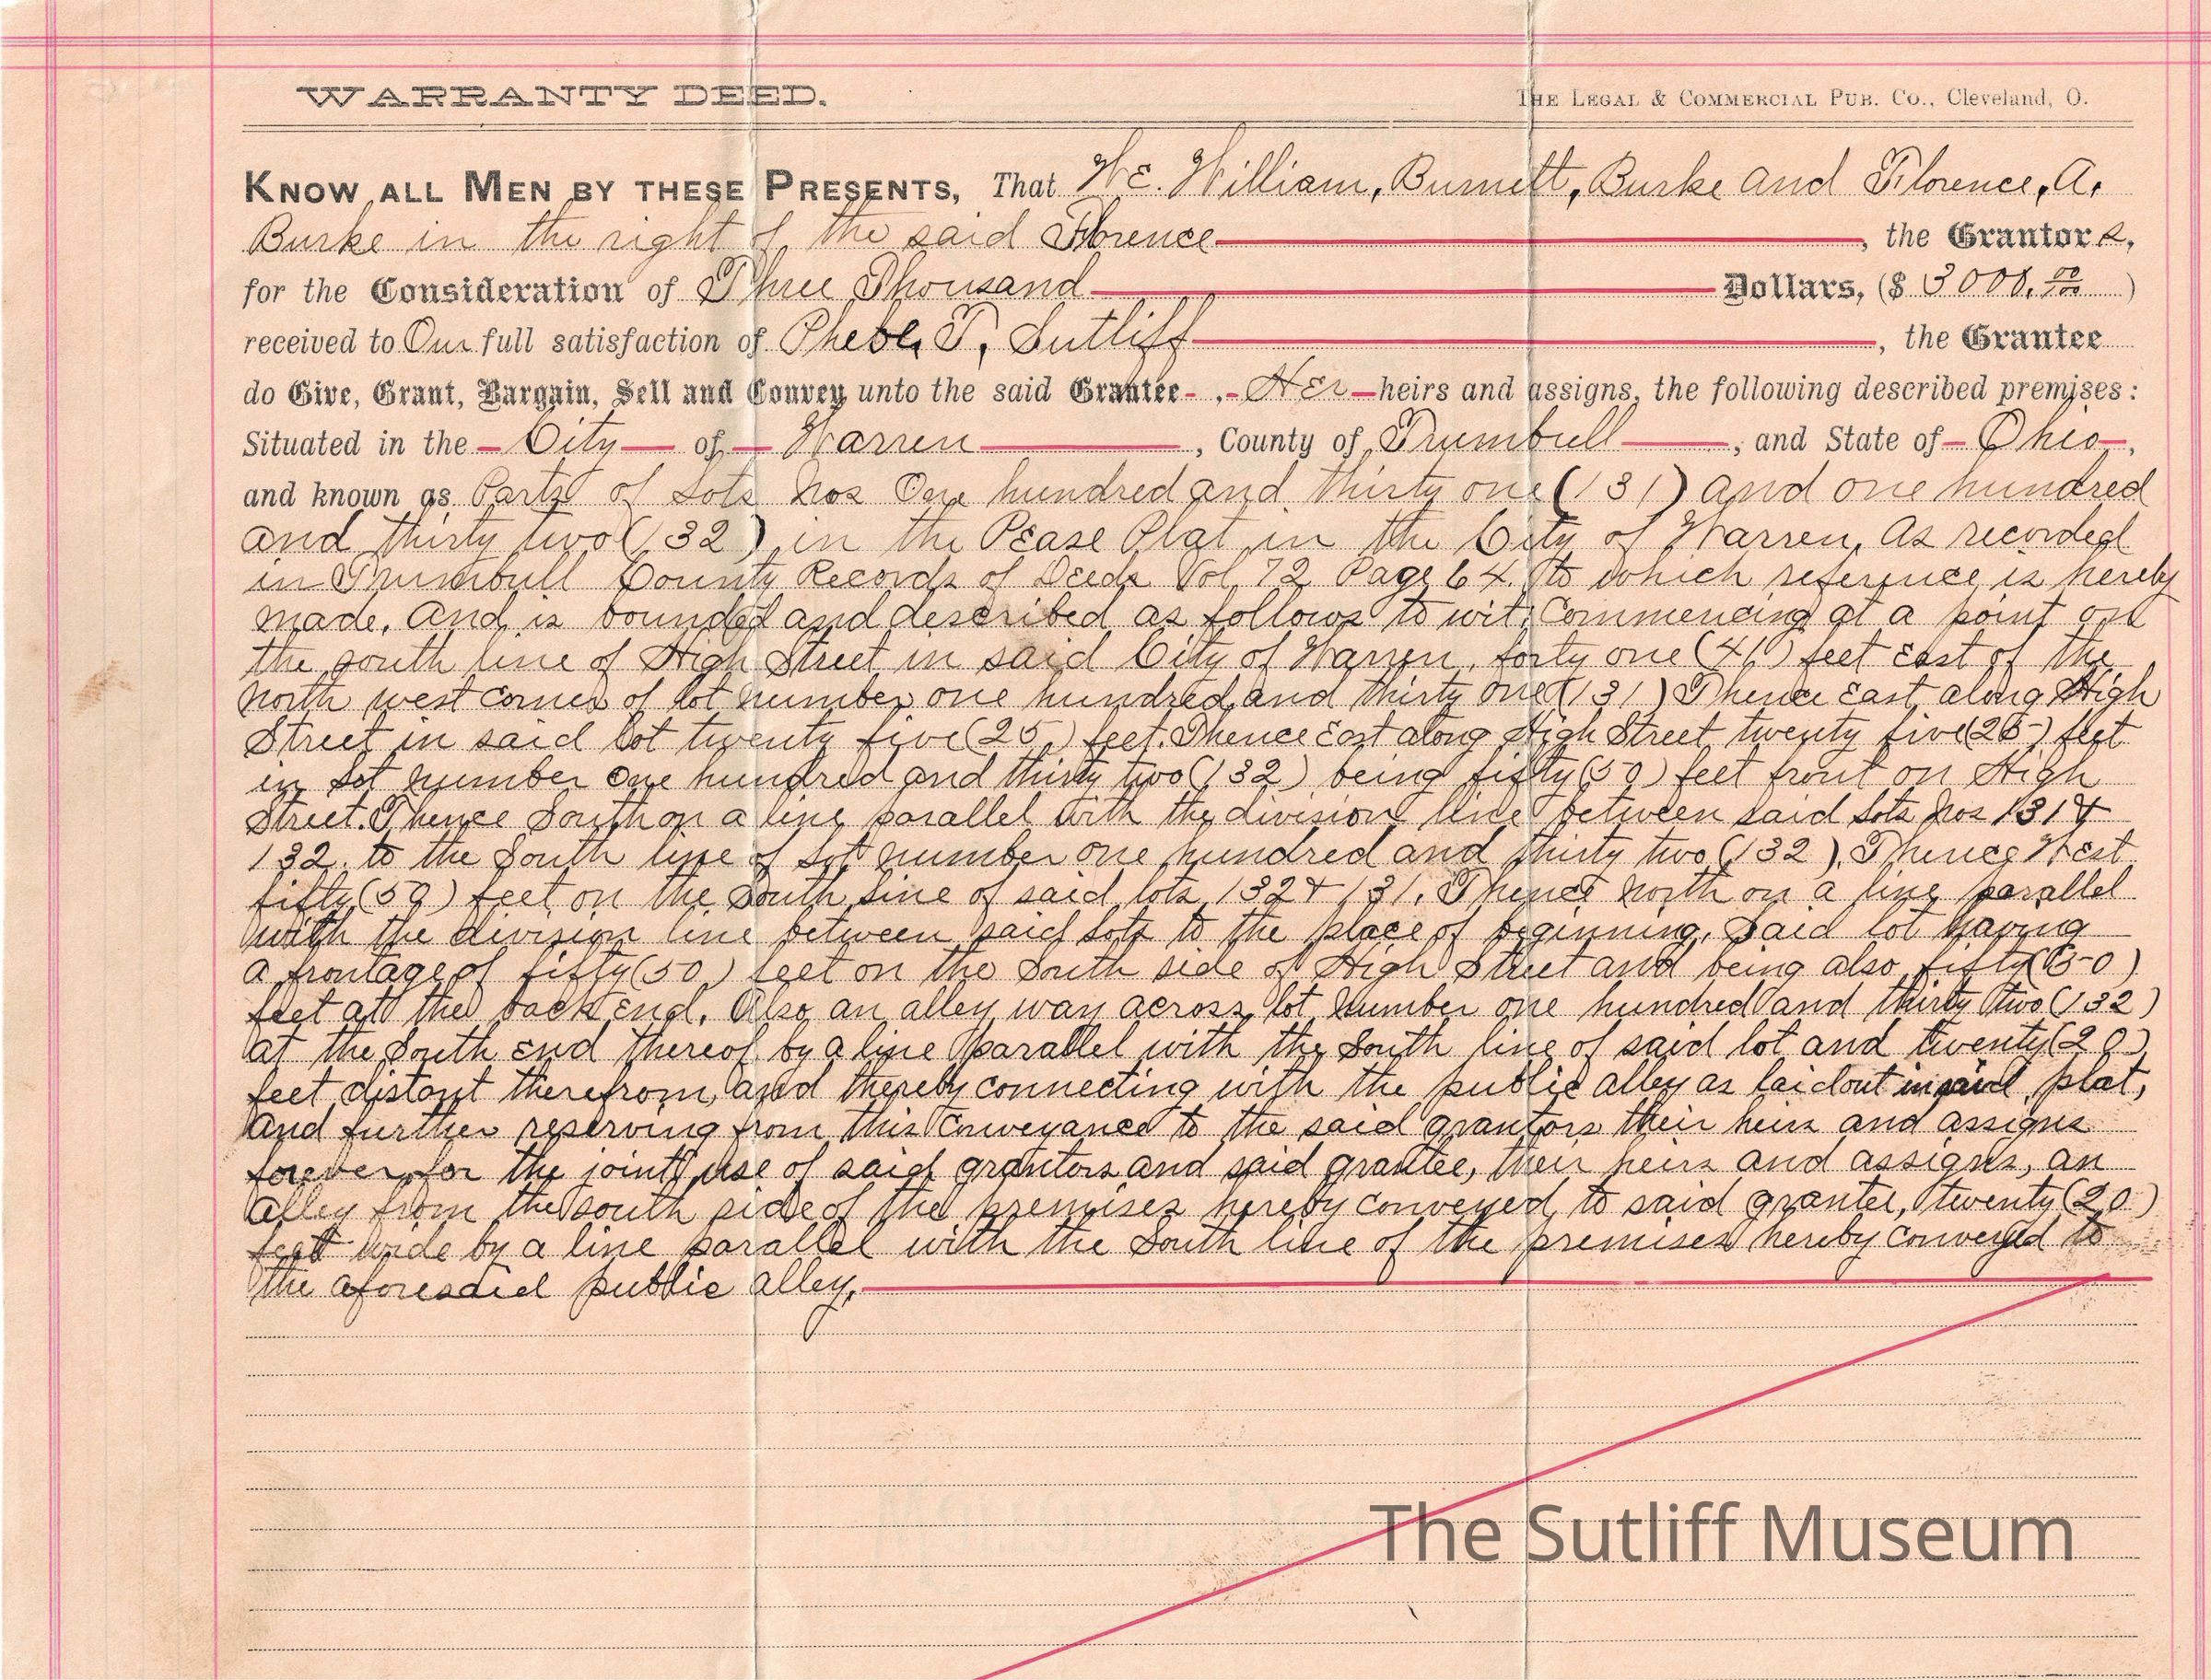 WARRANTY DEED.
THE LEGAL & COMMERCIAL PUB. CO., Cleveland, O.
KNOW ALL MEN BY THESE PRESENTS, That We. William, Burnett, Burke and Florence, A.
Burke in the right of the said Florence, the Grantors,
for the Consideration of Three Thousand Dollars, ($ 3000. 00/100 )
received to Our full satisfaction of Phebe, T, Sutliff, the Grantee
do Give, Grant, Bargain, Sell and Convey unto the said Grantee - , - Her - heirs and assigns, the following described premises :
Situated in the - City - of - Warren, County of Trumbull, and State of - Ohio -,
and known as Parts of Lots Nos One hundred and thirty one (131) and one hundred
and thirty two (132), in the Pease Plat in the City of Warren, As recorded
in Trumbull County Records of Deeds Vol, 72 Page 64. to which reference is hereby
made. And is bounded and described as follows to wit: Commencing at a point on
the south line of High Street in said City of Warren, forty one (41) feet East of the
North west corner of lot number one hundred and thirty one (131) Thence East along High
Street in said lot twenty five (25) feet. Thence East along High Street twenty five (25) feet
in Lot number One hundred and thirty two (132) being fifty (50) feet front on High
Street. Thence South on a line parallel with the division line between said Lots Nos 131 &
132. to the South line of Lot number one hundred and thirty two (132). Thence West
fifty (50) feet on the South line of said lots 132 & 131. Thence North on a line parallel
with the division line between said Lots to the place of beginning, Said lot having
a frontage of fifty (50) feet on the South side of High Street and being also fifty (50)
feet at the back End. Also an alley way across lot Number one hundred and thirty two (132)
at the South End thereof by a line parallel with the South line of said lot and twenty (20)
feet distant therefrom, and thereby connecting with the public alley as laid out in said plat,
And further reserving from this Conveyance to the said grantors their heirs and assigns
forever for the joint use of said grantors and said grantee, their heirs and assigns, an
Alley from the south side of the premises hereby conveyed to said grantee, twenty (20)
feet wide by a line parallel with the South line of the premises hereby conveyed to
the aforesaid public alley.
The Sutliff Museum